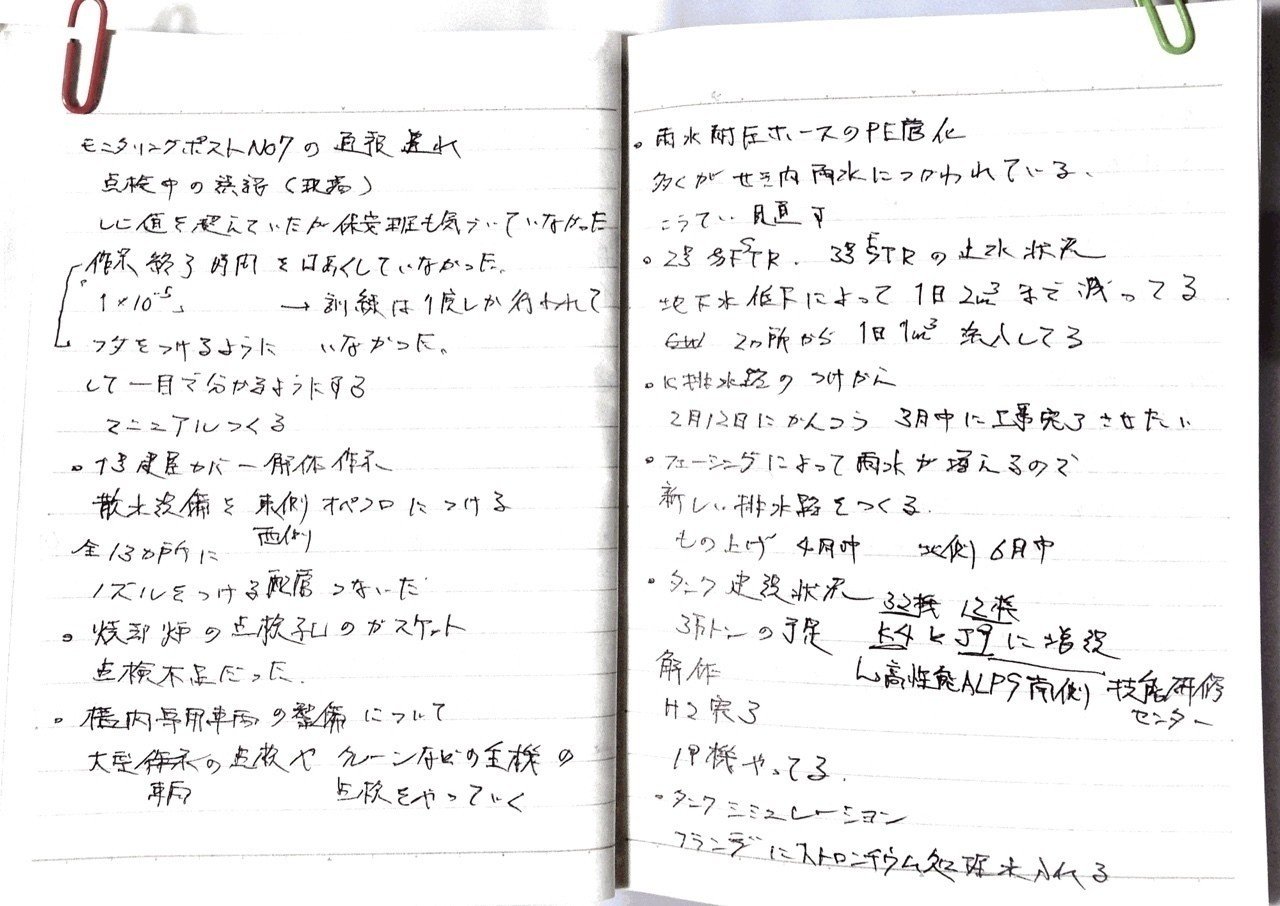 モニタリングポストNo7の通報遅れ
点検中の誤認(現場)
しに値を超えていたが保安班も気づいていなかった
作業終了時間をはあくしていなかった。
「1×10⁻⁵」 → 訓練は1度しか行われて
フタをつけるように いなかった。
して一目で分かるようにする
マニュアルつくる
・1号建屋カバー解体作業
散水設備を東側オペフロにつける
西側
全13か所に
ノズルをつける配管つないだ
・焼却炉の点検孔のガスケット
点検不足だった.
・構内専用車両の整備について
大型作業の点検やクレーンなどの重機の
車両 点検をやっていく
・雨水耐圧ホースのPE管化
多くがせき内雨水につかわれている.
こうてい見直す
・2号FSTR. 3号FSTRの止水状況
地下水低下によって1日2m³まで減ってる
2ヵ所から1日1m³流入してる
・K排水路のつけかえ
2月12日にかんつう 3月中に工事完了させたい
・フェーシングによって雨水が増えるので
新しい排水路をつくる.
もの上げ 4月中 北側6月中
・タンク建設状況
32機 12機
3万トンの予定 K4とJ9に増設
└高性能ALPS南側 技能研修
センター
解体
H2完了
19機やってる.
・タンクシミュレーション
フランジにストロンチウム処理水入れる